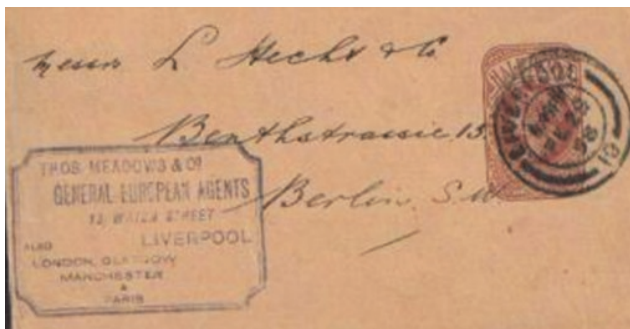 Messrs L Hecht & Co.
Benthstrasse 13.
Berlin, S.W
THOS. MEADOWS & Co.
GENERAL EUROPEAN AGENTS
WATER STREET
LIVERPOOL
ALSO
LONDON, GLASGOW
MANCHESTER
&
PARIS
LIVERPOOL